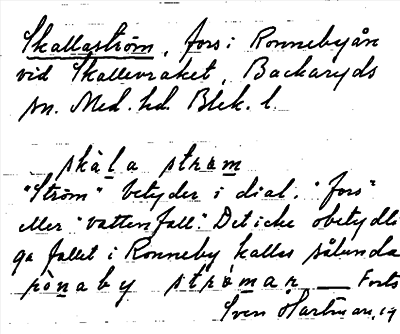 Skallaström, fors i Ronnebyån
vid Skallevraket, Backaryds
sn. Med. hd. Blek. l.
skàla strøm
"Ström" betyder i dial. "fors"
eller "vattenfall". Det icke obetydli
ga fallet i Ronneby kallas sålunda
rònaby strømar. — Forts
Sven Hartman, 19